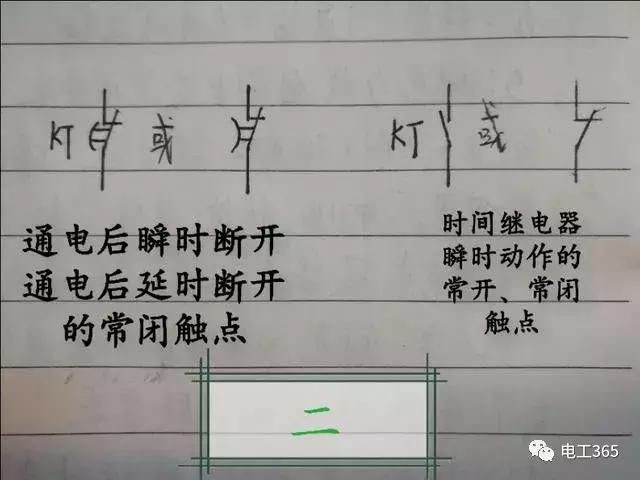 KT 或 KT 或
通电后瞬时断开
通电后延时断开
的常闭触点
时间继电器
瞬时动作的
常开、常闭
触点
二
电工365